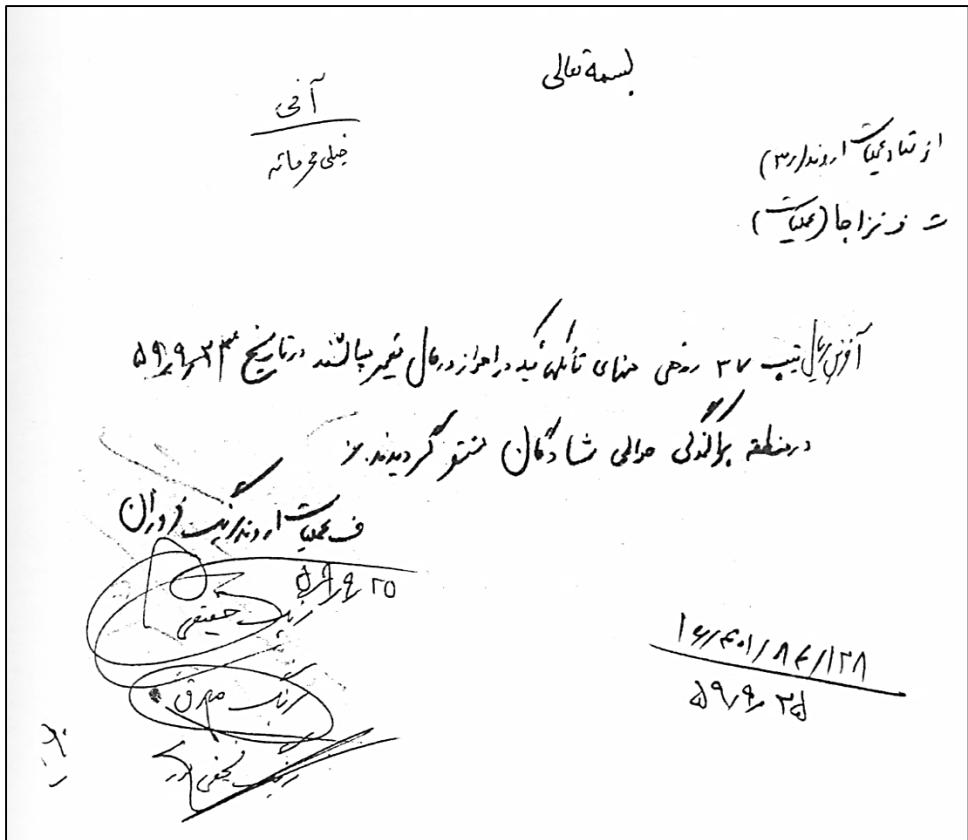 بسمه تعالی
آنی
خیلی محرمانه
از ستاد عملیات اروند (ر۳)
ت ف نزاجا (عملیات)
آخرین تیپ ۳۷ زرهی منهای تانکهائیکه در اهواز در حال تعمیر میباشند در تاریخ ۵۹٫۹٫۲۳
در منطقه پراکندگی حوالی شادگان مستقر گردیدند.
ف عملیات اروند سرتیپ فروزان
۵۹٫۹٫۲۵
حقیقی
۱۲۸
۵۹٫۹٫۲۵